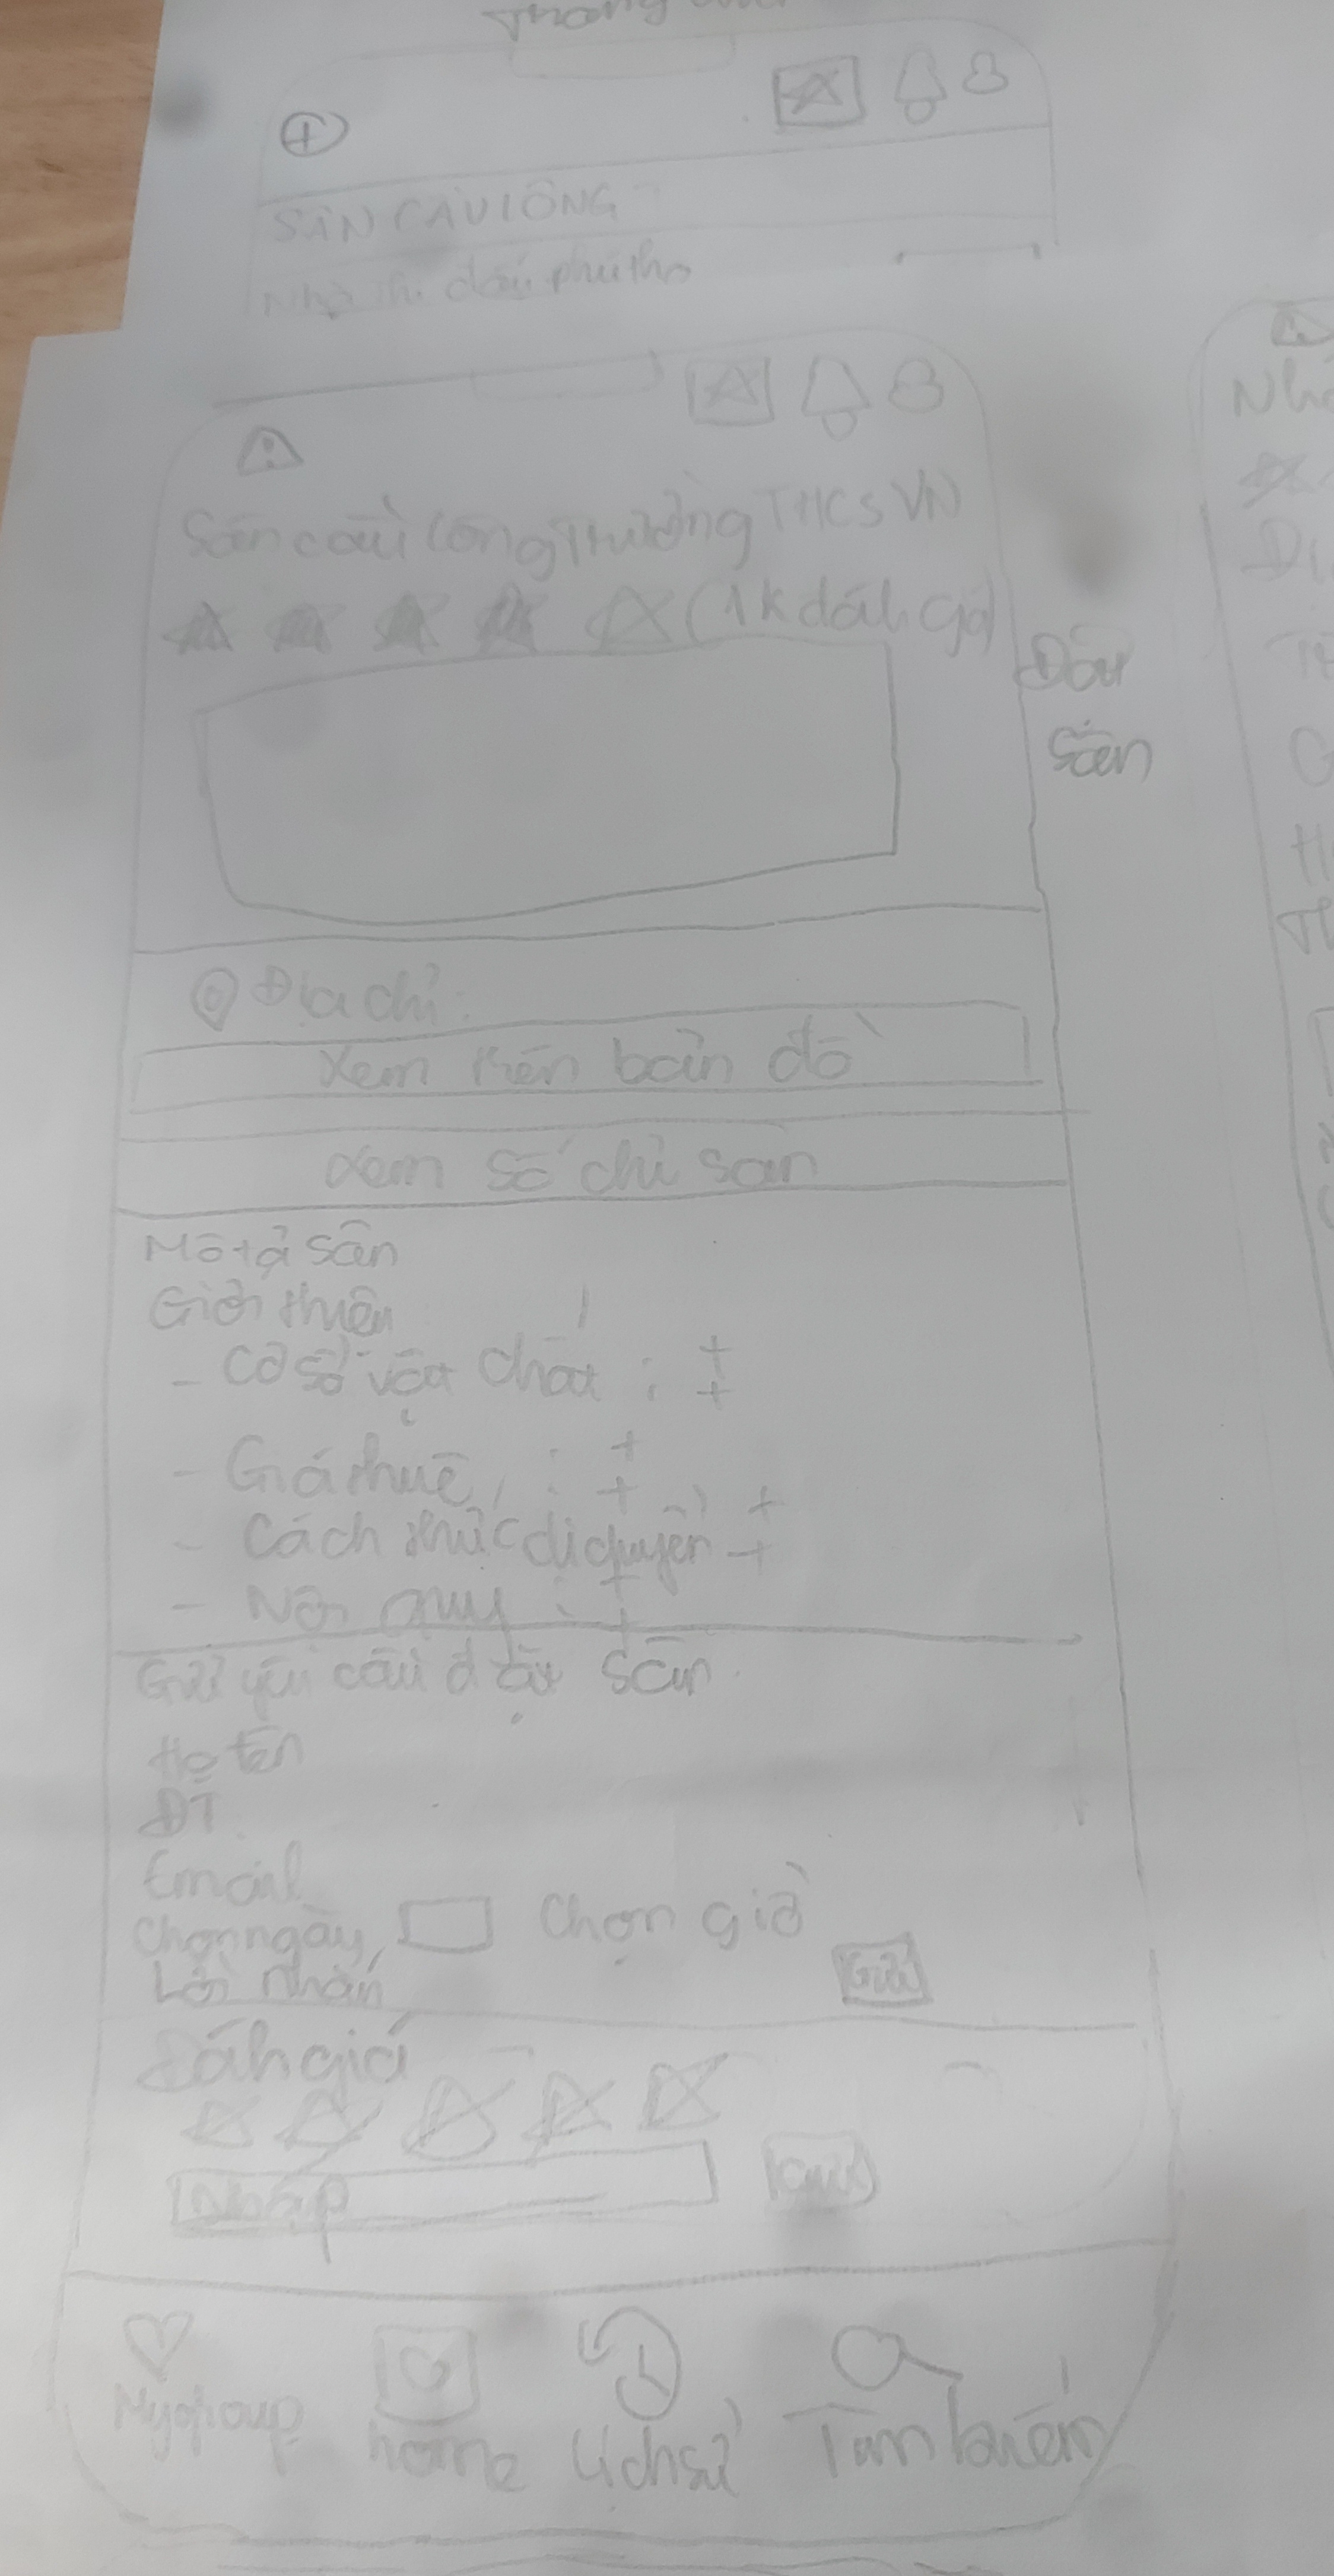 SÂN CẦU LÔNG
Nhà thi đấu phú thọ
Sân cầu lông Trường THCS VN
(1k đánh giá)
Đặt
sân
Địa chỉ:
Xem trên bản đồ
Xem số chủ sân
Mô tả sân
Giới thiệu
- Cơ sở vật chất : +
+
- Giá thuê : +
+
- Cách thức di chuyển +
+
- Nội quy : +
+
Gửi yêu cầu đặt sân
Họ tên
ĐT
Email
Chọn ngày, Chọn giờ
Lời nhắn
Gửi
Đánh giá
Nhập
Gửi
My group
home
Lịch sử
Tìm kiếm